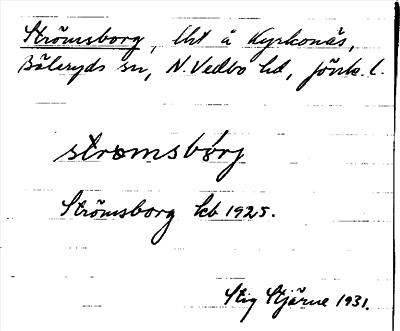 Strömsborg, lht å Kyrkonäs,
Bälaryds sn, N. Vedbo hd, Jönk. l.
strømsbørj
Strömsborg kb 1925.
Stig Stjärne 1931.